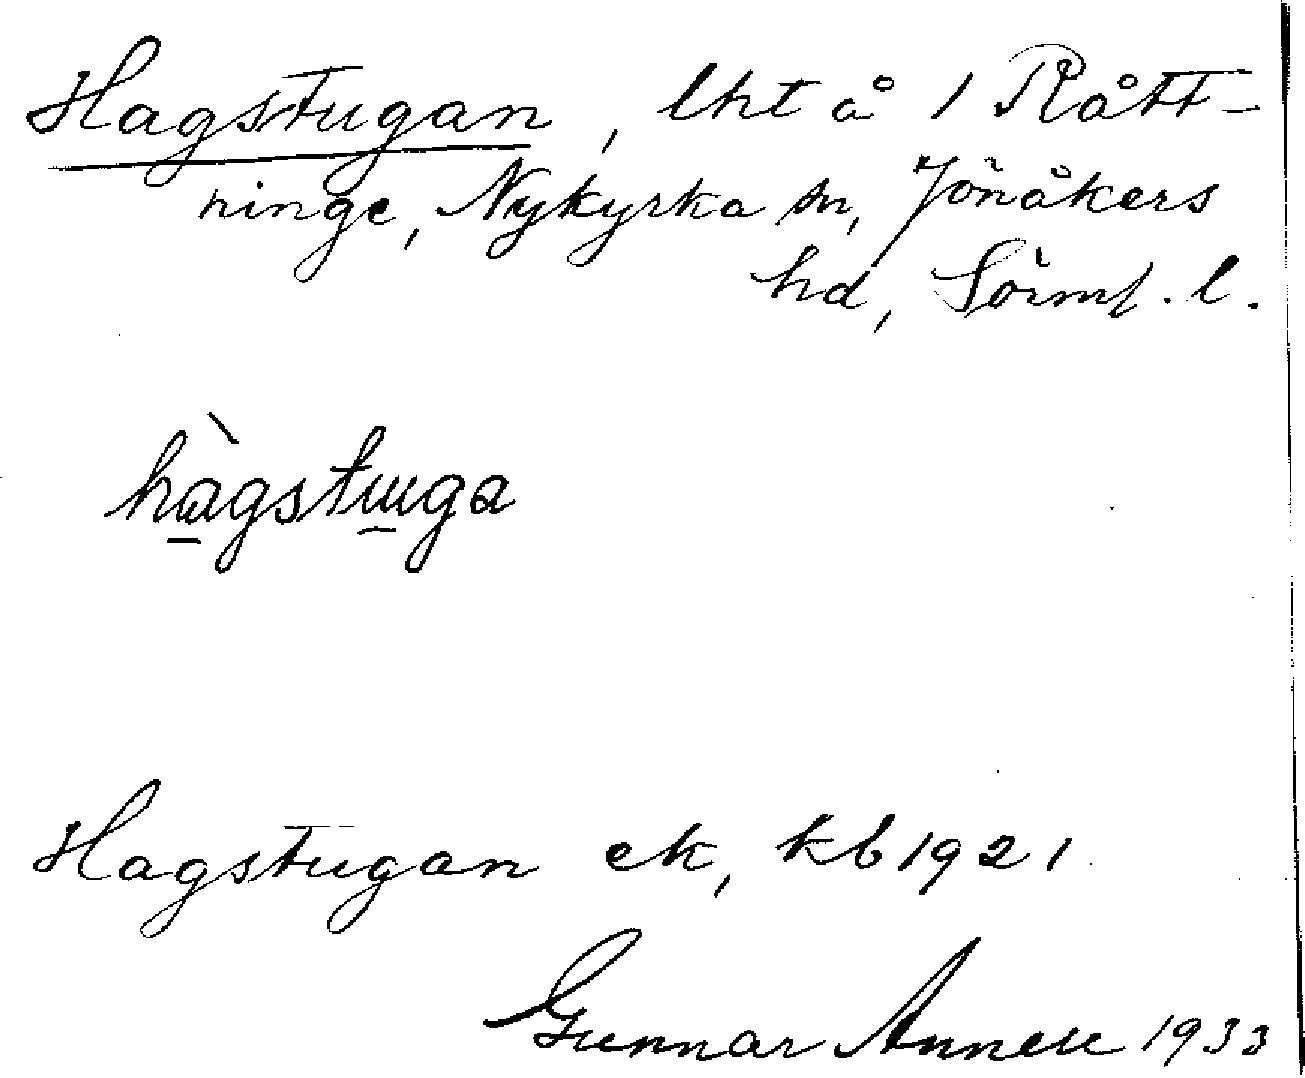 Hagstugan, lht å 1 Rått-
ninge, Nykyrka sn, Jönåkers
hd, Sörml. l.
hàgstɯga
Hagstugan ek, kb 1921
Gunnar Annell 1933